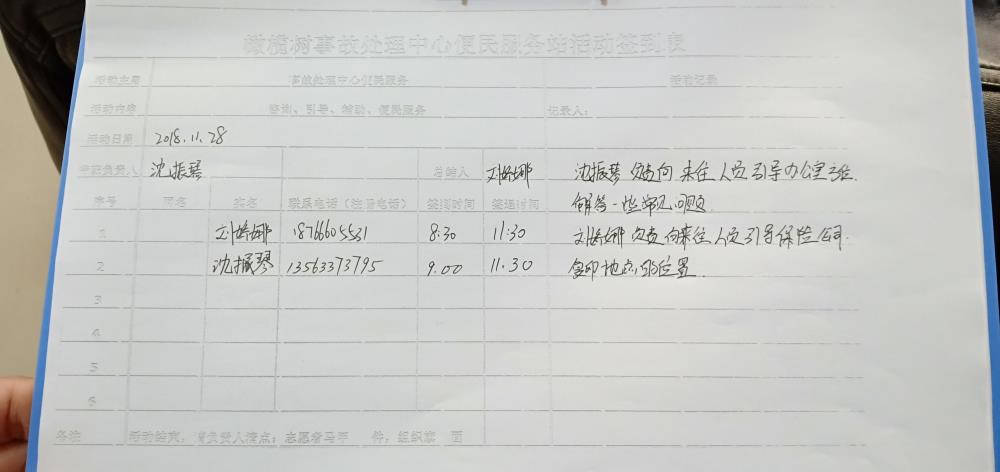 橄榄树事故处理中心便民服务站活动签到表
活动主题 事故处理中心便民服务 活动记录
活动内容 咨询、引导、辅助、便民服务 记录人：
活动日期 2018.11.28
负责人 沈振琴 总结人 刘婷娜 沈振琴 负责向来往人员引导办公室
序号 网名 实名 联系电话（注册电话） 签到时间 签退时间 解答一些常见问题
1 刘婷娜 18766605531 8:30 11:30 刘婷娜 负责向来往人员引导保险公司.
2 沈振琴 13563373795 9.00 11.30 复印地点的位置.
3
4
5
6
备注 活动结束，请负责人清点：志愿者马甲 件；组织旗 面